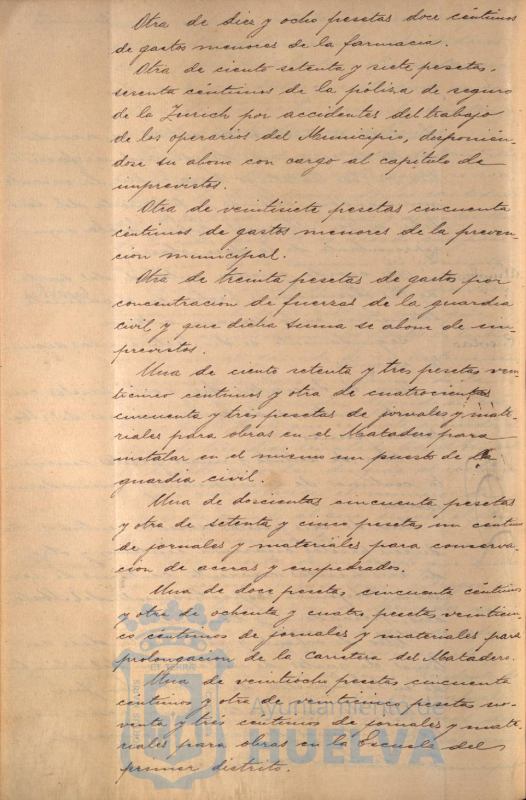 Otra de diez y ocho pesetas doce céntimos
de gastos menores de la farmacia.
Otra de ciento setenta y siete pesetas,
sesenta céntimos de la póliza de seguro
de la Zurich por accidentes del trabajo
de los operarios del Municipio, disponién-
dose su abono con cargo al capítulo de
imprevistos.
Otra de veintisiete pesetas cincuenta
céntimos de gastos menores de la preven-
ción municipal.
Otra de treinta pesetas de gastos por
concentración de fuerzas de la guardia
civil y que dicha suma se abone de im-
previstos.
Una de ciento setenta y tres pesetas vein-
ticinco céntimos y otra de cuatrocientas
cincuenta y tres pesetas de jornales y mate-
riales para obras en el Matadero para
instalar en el mismo un puesto de la
guardia civil.
Una de doscientas cincuenta pesetas
y otra de setenta y cinco pesetas un céntimo
de jornales y materiales para conserva-
ción de aceras y empedrados.
Una de doce pesetas, cincuenta céntimos
y otra de ochenta y cuatro pesetas veinticin-
co céntimos de jornales y materiales para
prolongación de la Carretera del Matadero.
Una de veintiocho pesetas cincuenta
céntimos y otra de veinticinco pesetas no-
venta y tres céntimos de jornales y mate-
riales para obras en la Escuela del
primer distrito.
Ayuntamiento de
HUELVA